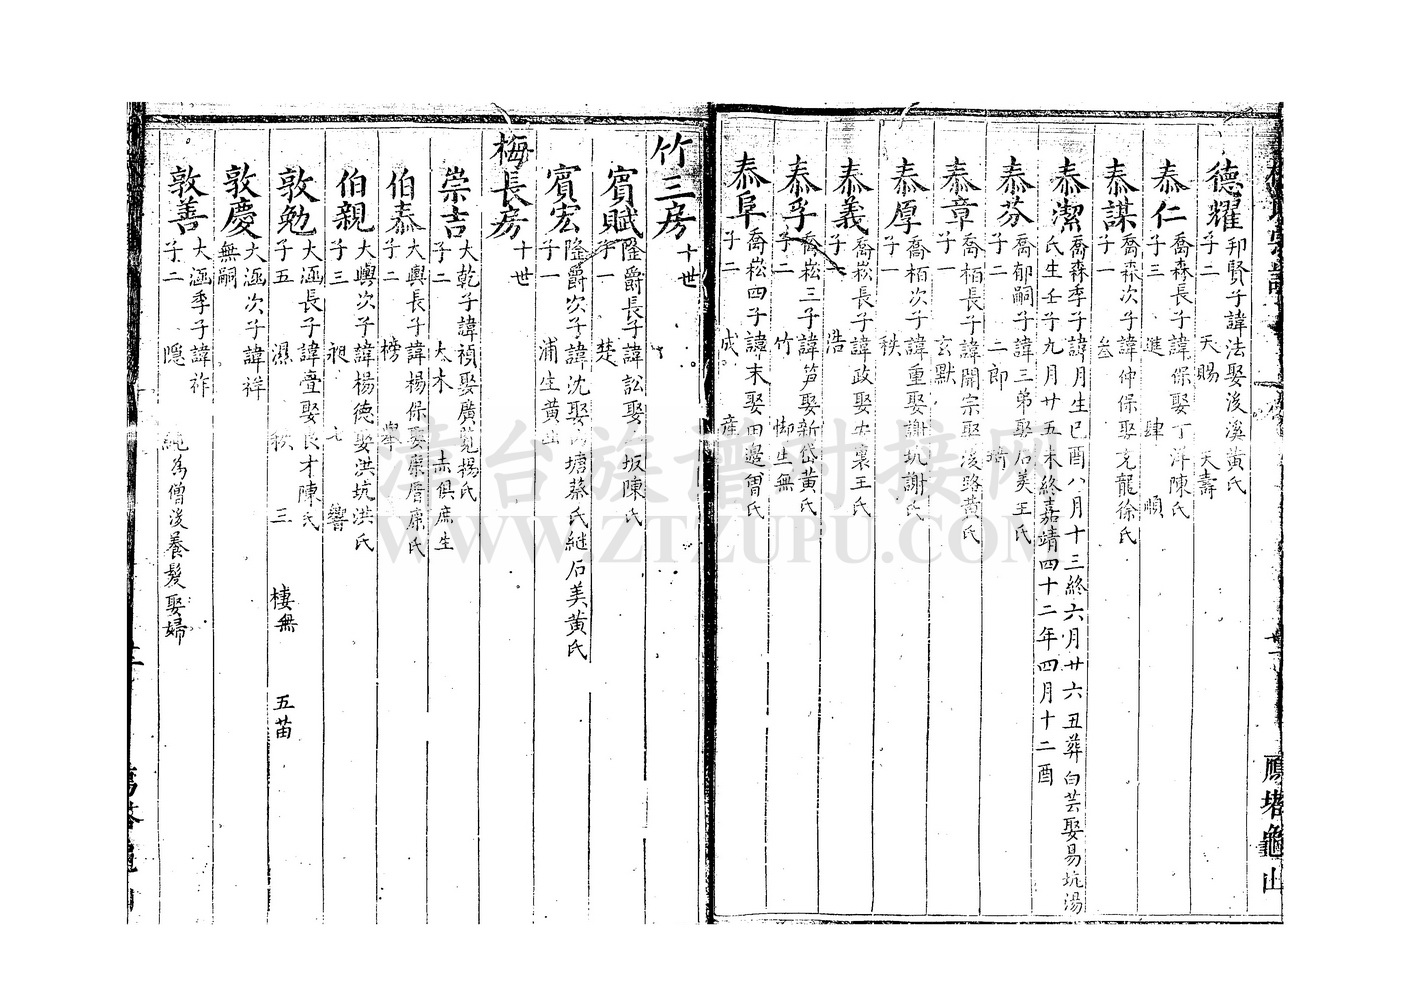 德耀 邦賢子諱法娶後溪黃氏
子二 天賜 天壽
泰仁 喬森長子諱保娶丁洋陳氏
子三 進 肆 順
泰謀 喬森次子諱仲保娶亢龍徐氏
子一 叁
泰潔 喬森季子諱月生己酉八月十三終六月廿六丑葬白芸娶易坑湯
氏生壬子九月廿五未終嘉靖四十二年四月十二酉
泰芬 喬郁嗣子諱三弟娶石美王氏
子二 二郎 琦
泰章 喬栢長子諱開宗娶後路黃氏
子一 玄默
泰厚 喬栢次子諱重娶謝坑謝氏
子一 秩
泰義 喬崧長子諱政娶安裏王氏
子一 浩
泰孚 喬崧三子諱笋娶新岱黃氏
子二 竹 生無
泰阜 喬崧四子諱末娶田邊曾氏
子二 成 產
竹三房 十世
賓賦 隆爵長子諱訟娶 坂陳氏
子一 楚
賓宏 隆爵次子諱沈娶 塘蔡氏継石美黃氏
子一 浦生黃出
梅長房 十世
崇吉 大乾子諱禎娶廣 楊氏
子二 太木 赤俱庶生
伯泰 大輿長子諱楊保娶 康氏
子二 榜 舉
伯親 大輿次子諱楊德娶洪坑洪氏
子三 昶 七 響
敦勉 大涵長子諱疊娶良才陳氏
子五 濕 秋 三 棲無 五苗
敦慶 大涵次子諱祥
無嗣
敦善 大涵季子諱祚
子二 隱 純為僧後養髮娶婦
鴈塔龜山